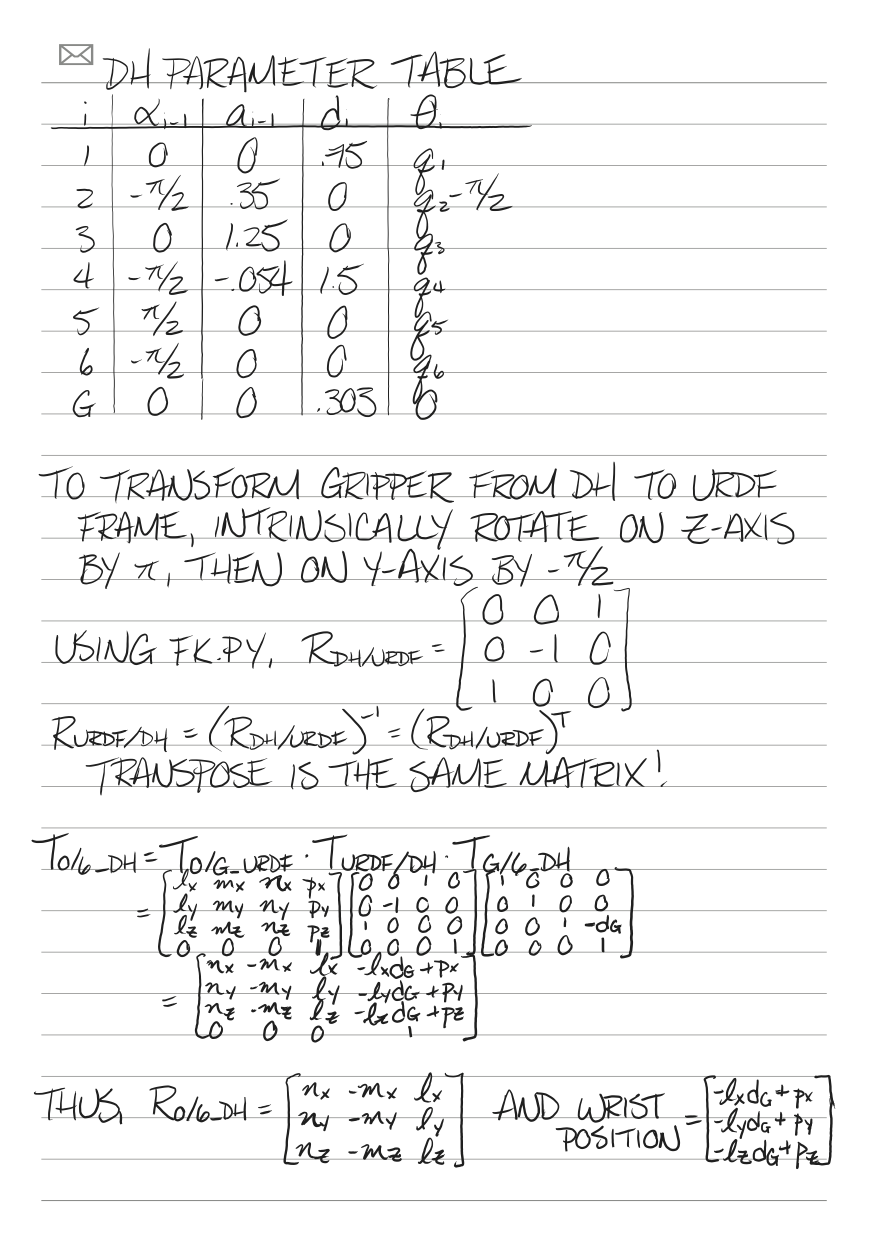 DH PARAMETER TABLE
i | αi-1 | ai-1 | di | θi
1 | 0 | 0 | .75 | q1
2 | -π/2 | .35 | 0 | q2-π/2
3 | 0 | 1.25 | 0 | q3
4 | -π/2 | -.054 | 1.5 | q4
5 | π/2 | 0 | 0 | q5
6 | -π/2 | 0 | 0 | q6
G | 0 | 0 | .303 | 0
TO TRANSFORM GRIPPER FROM DH TO URDF
FRAME, INTRINSICALLY ROTATE ON Z-AXIS
BY π, THEN ON Y-AXIS BY -π/2
USING FK.PY, RDH/URDF = [0 0 1
0 -1 0
1 0 0]
RURDF/DH = (RDH/URDF)^-1 = (RDH/URDF)^T
TRANSPOSE IS THE SAME MATRIX!
T0/6_DH = T0/G_URDF · TURDF/DH · TG/6_DH
= [lx mx nx px] [0 0 1 0] [1 0 0 0]
[ly my ny py] [0 -1 0 0] [0 1 0 0]
[lz mz nz pz] [1 0 0 0] [0 0 1 -dG]
[0 0 0 1] [0 0 0 1] [0 0 0 1]
= [nx -mx lx -lxdG+px]
[ny -my ly -lydG+py]
[nz -mz lz -lzdG+pz]
[0 0 0 1]
THUS, R0/6_DH = [nx -mx lx] AND WRIST POSITION = [-lxdG+px]
[ny -my ly] [-lydG+py]
[nz -mz lz] [-lzdG+pz]